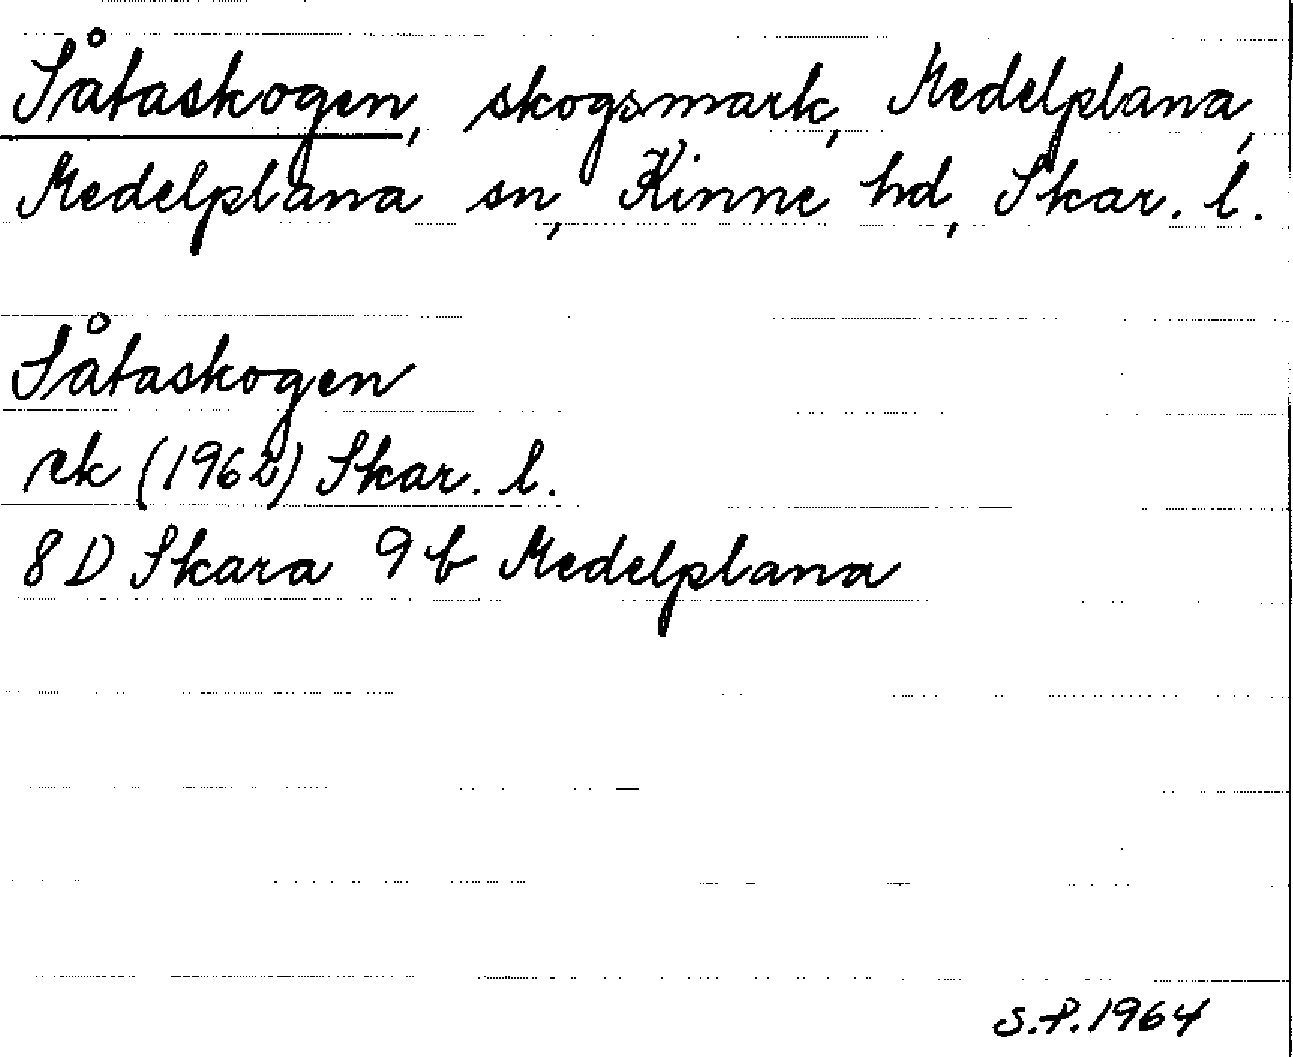 Såtaskogen, skogsmark, Medelplana,
Medelplana sn, Kinne hd, Skar. l.
Såtaskogen
rk (1962) Skar. l.
8 D Skara 9 b Medelplana
S.P. 1964